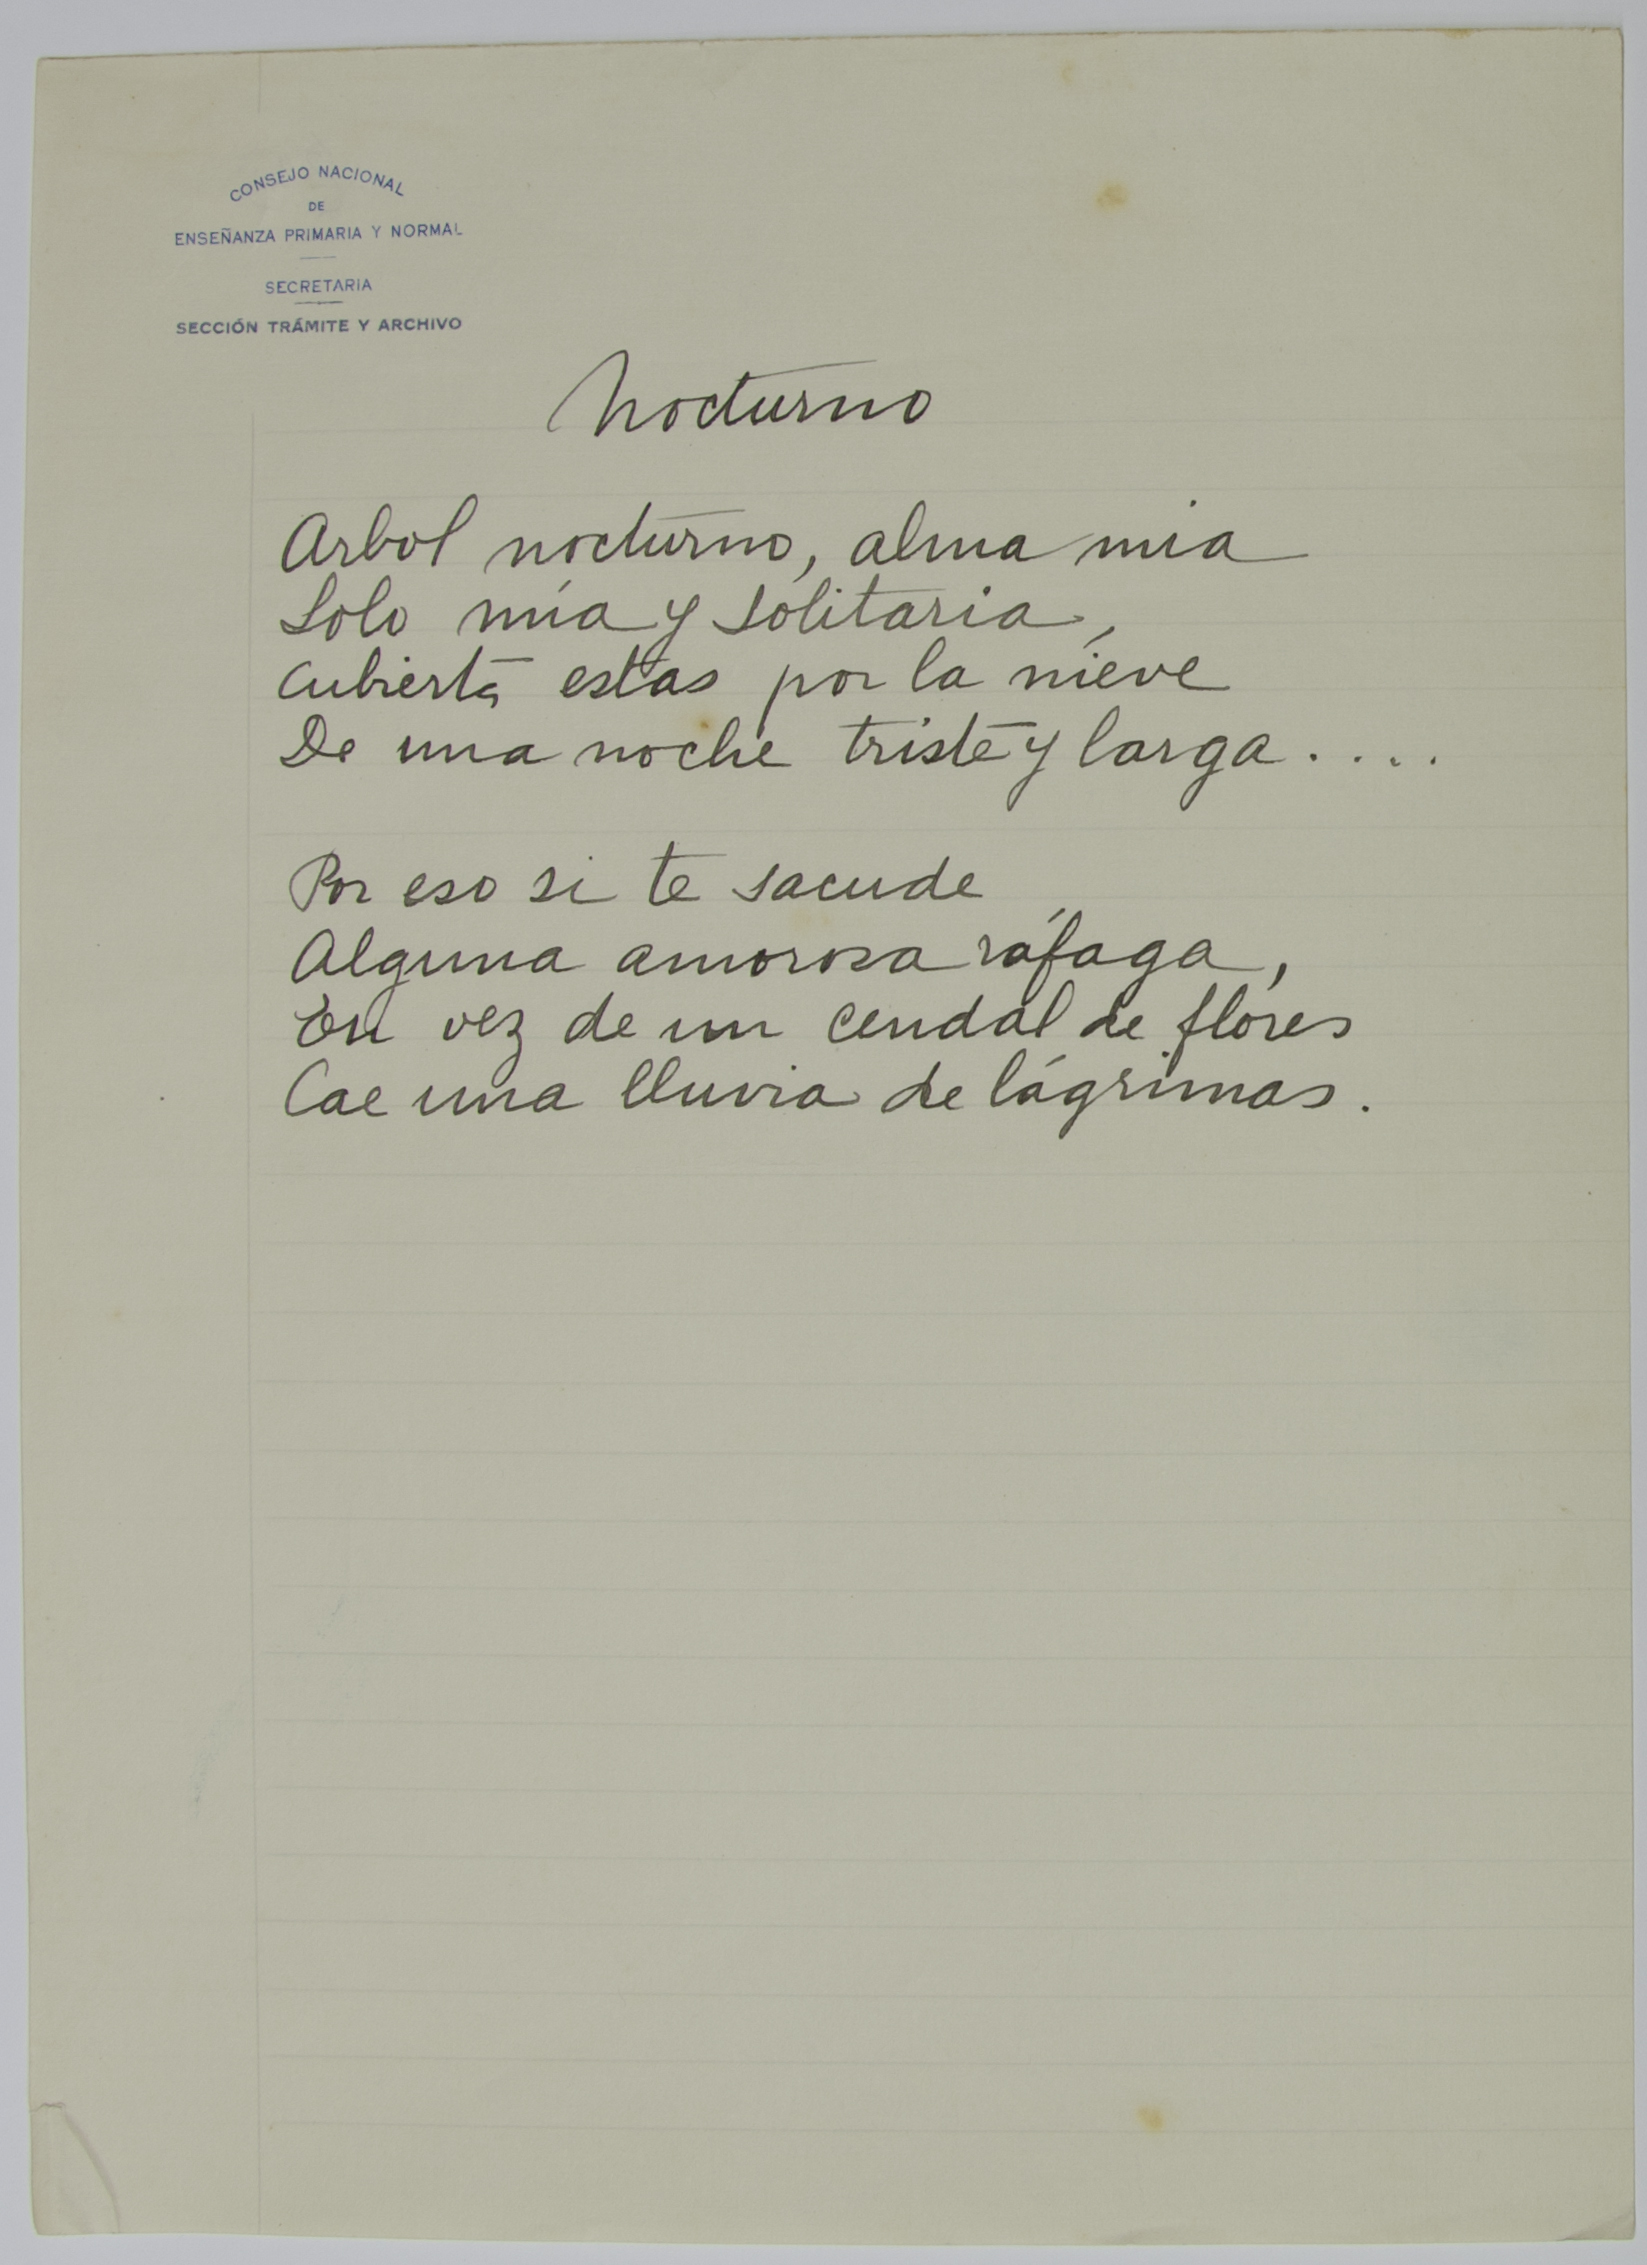 CONSEJO NACIONAL
DE
ENSEÑANZA PRIMARIA Y NORMAL
SECRETARIA
SECCIÓN TRÁMITE Y ARCHIVO
Nocturno
Arbol nocturno, alma mia
Solo mía y solitaria,
Cubierta estas por la nieve
De una noche triste y larga....
Por eso si te sacude
Alguna amorosa ráfaga,
En vez de un cendal de flores
Cae una lluvia de lágrimas.